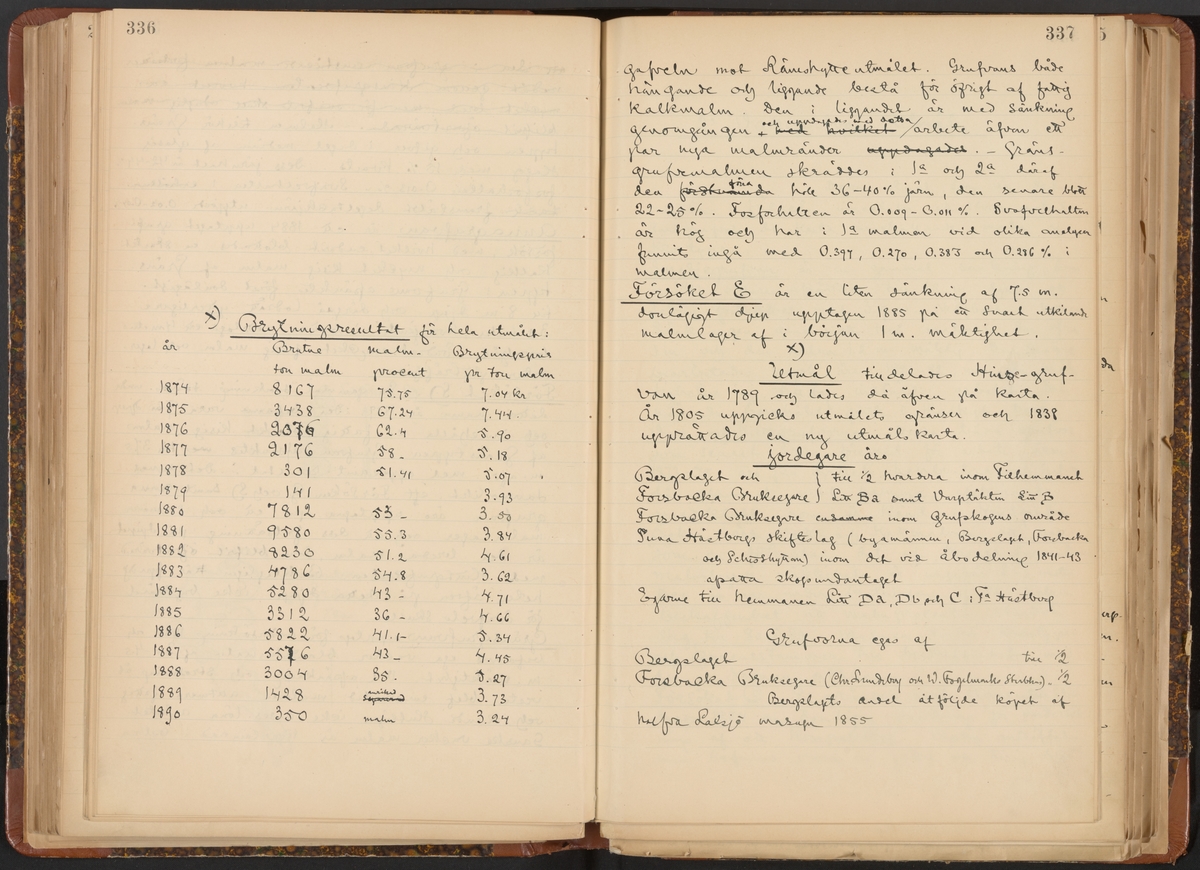 336
x) Brytningsresultat för hela utmålet:
år Brutne ton malm malm-procent Brytningspris pr ton malm
1874 8167 75.75 7.04 kr
1875 3438 67.24 7.44
1876 2076 62.4 5.90
1877 2176 58- 5.18
1878 301 51.41 5.07
1879 141 3.93
1880 7812 53- 3.50
1881 9580 55.3 3.84
1882 8230 51.2 4.61
1883 4786 54.8 3.62
1884 5280 43- 4.71
1885 3312 36- 4.66
1886 5822 41.1- 5.34
1887 5576 43- 4.45
1888 3004 35. 5.27
1889 1428 3.73
1890 350 malm 3.24
337
gafveln mot Rämshytte utmålet. Grufvans både
hängande och liggande bestå för öfrigt af fattig
kalkmalm. Den i liggandet är med sänkning
genomgången och med hvilket arbete äfven ett
par nya malmränder uppdagades. - Gräns-
grufvemalmen skräddes i 1a och 2a däraf
den förra höll 36-40% järn, den senare blott
22-25%. Fosforhalten är 0.009-0.011%. Svafvelhalten
är hög och har i 1a malmen vid olika analyser
funnits ingå med 0.397, 0.270, 0.383 och 0.286% i
malmen.
Försöket E är en liten sänkning af 7.5 m.
donlägigt djup upptagen 1885 på ett snart utkilande
malmlager af i början 1 m. mäktighet.
x)
Utmål tilldelades Hinse-gruf-
van år 1789 och lades då äfven på karta.
År 1805 uppgicks utmålets gränser och 1838
upprättades en ny utmåls karta.
Jordegare äro
Bergslaget och } till 1/2 hvardera inom Filhemmanet
Forsbacka Bruksegare } Litt Ba samt Litt B
Forsbacka Bruksegare ensamme inom Grufskogens område
Tuna Hästbergs skifteslag (byamännen, Bergslaget, Forsbacka
och Schisshyttan) inom det vid åbodelning 1841-43
afsatta skogsundantaget
Egarne till hemmanen Litt Da, Db och C i Fa Hästberg
Grufvorna egas af
Bergslaget till 1/2
Forsbacka Bruksegare (Chr Lundeberg och W. Fogelmarks Sterbhus) - 1/2
Bergslagets andel åtföljde köpet af
halfva masugn 1855